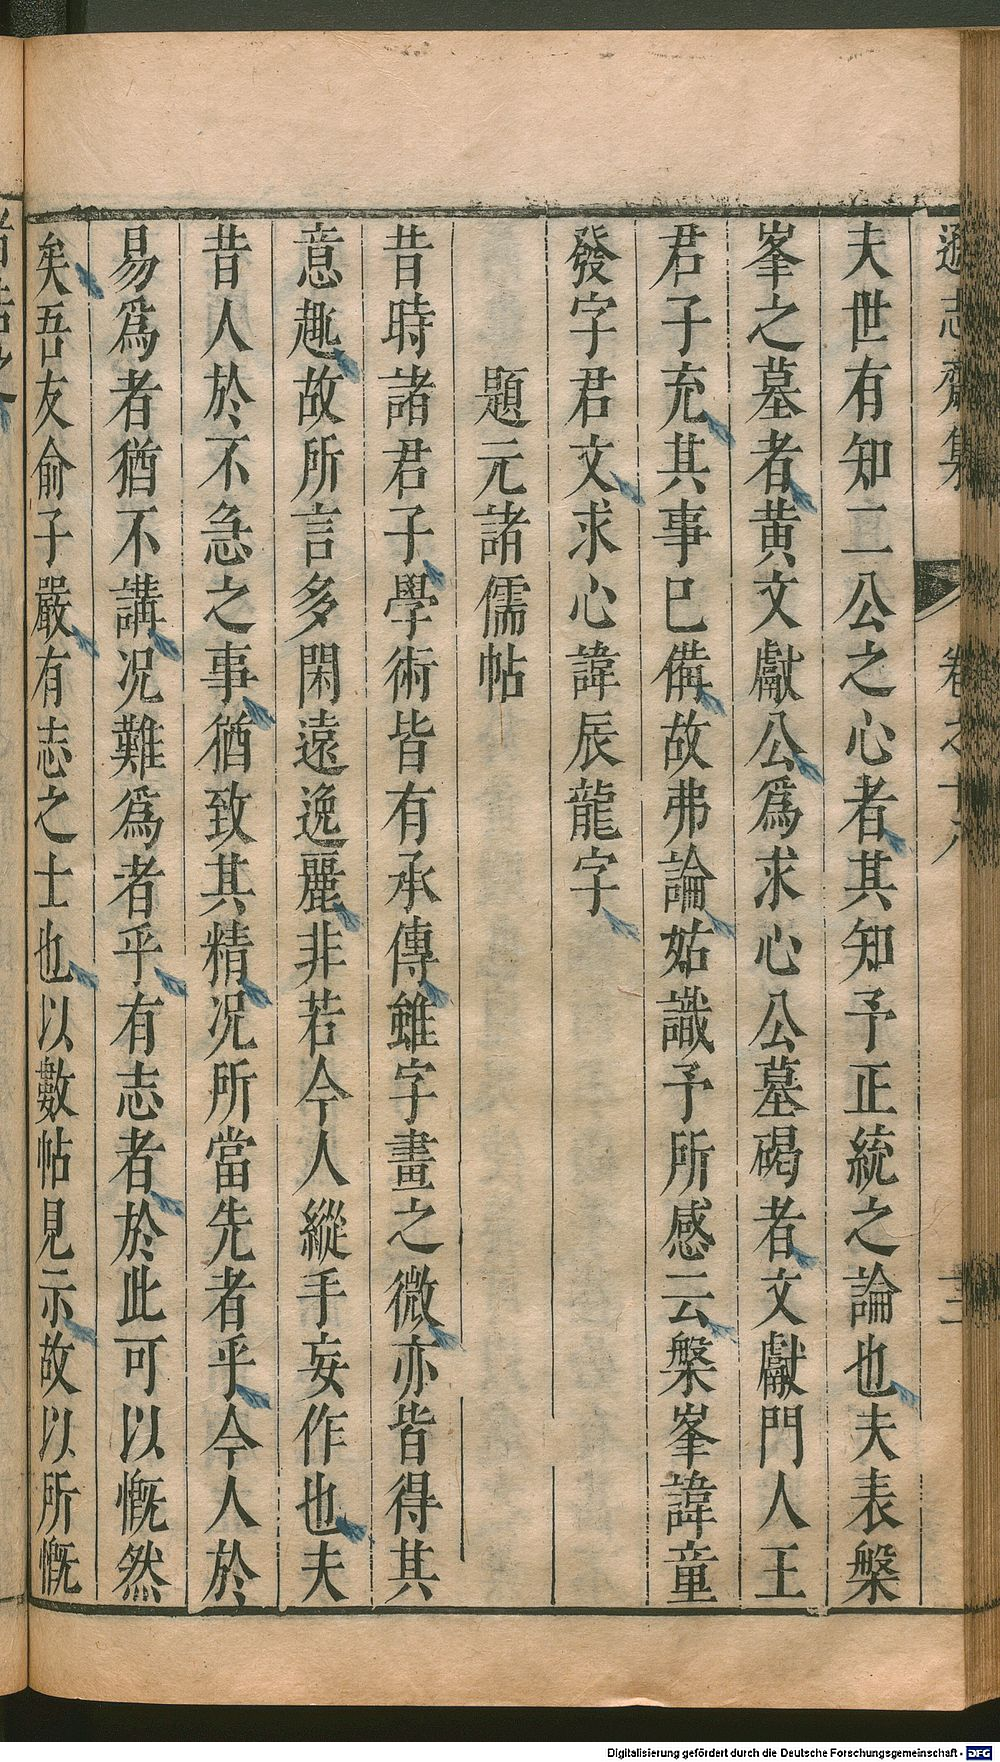 遜志齋集 卷之十八 十三
夫世有知二公之心者其知予正統之論也夫表槃
峯之墓者黄文獻公爲求心公墓碣者文獻門人王
君子充其事已備故弗論姑識予所感云槃峯諱童
發字君文求心諱辰龍字
題元諸儒帖
昔時諸君子學術皆有承傳雖字畫之微亦皆得其
意趣故所言多閑遠逸麗非若今人縱手妄作也夫
昔人於不急之事猶致其精况所當先者乎今人於
易爲者猶不講况難爲者乎有志者於此可以慨然
矣吾友俞子嚴有志之士也以數帖見示故以所慨
Digitalisierung gefördert durch die Deutsche Forschungsgemeinschaft - DFG